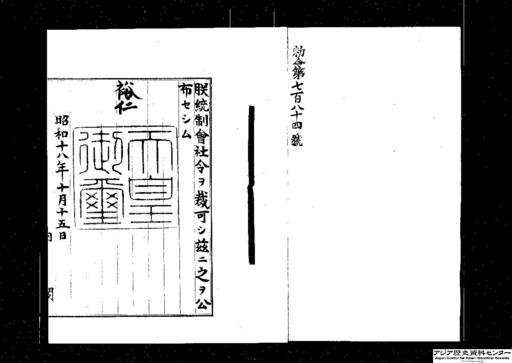 勅令第七百八十四號
朕統制會社令ヲ裁可シ茲ニ之ヲ公
布セシム
裕仁
天皇
御璽
昭和十八年十月十五日
内閣
アジア歴史資料センター
Japan Center for Asian Historical Records